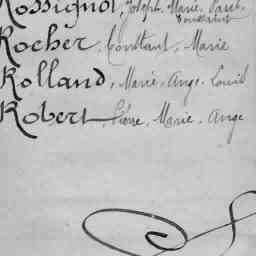 Rossignol, Joseph. Marie. Paul.
Rocher, Constant. Marie
Rolland, Marie. Ange. Louis
Robert, Pierre. Marie. Ange